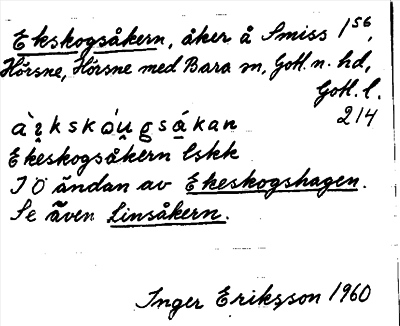 Ekskogsåkern, åker å Smiss 1 56,
Hörsne, Hörsne med Bara sn, Gotl. n. hd,
Gotl. l.
214
Ekeskogsåkern lskk
I Ö ändan av Ekeskogshagen.
Se även Linsåkern.
Inger Eriksson 1960